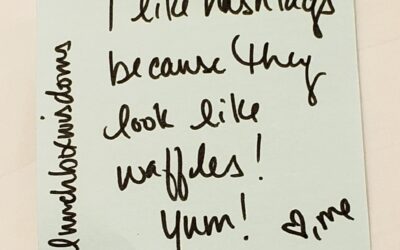 I like hashtags
because they
look like
waffles!
Yum!
♡, me
lunchboxwisdoms